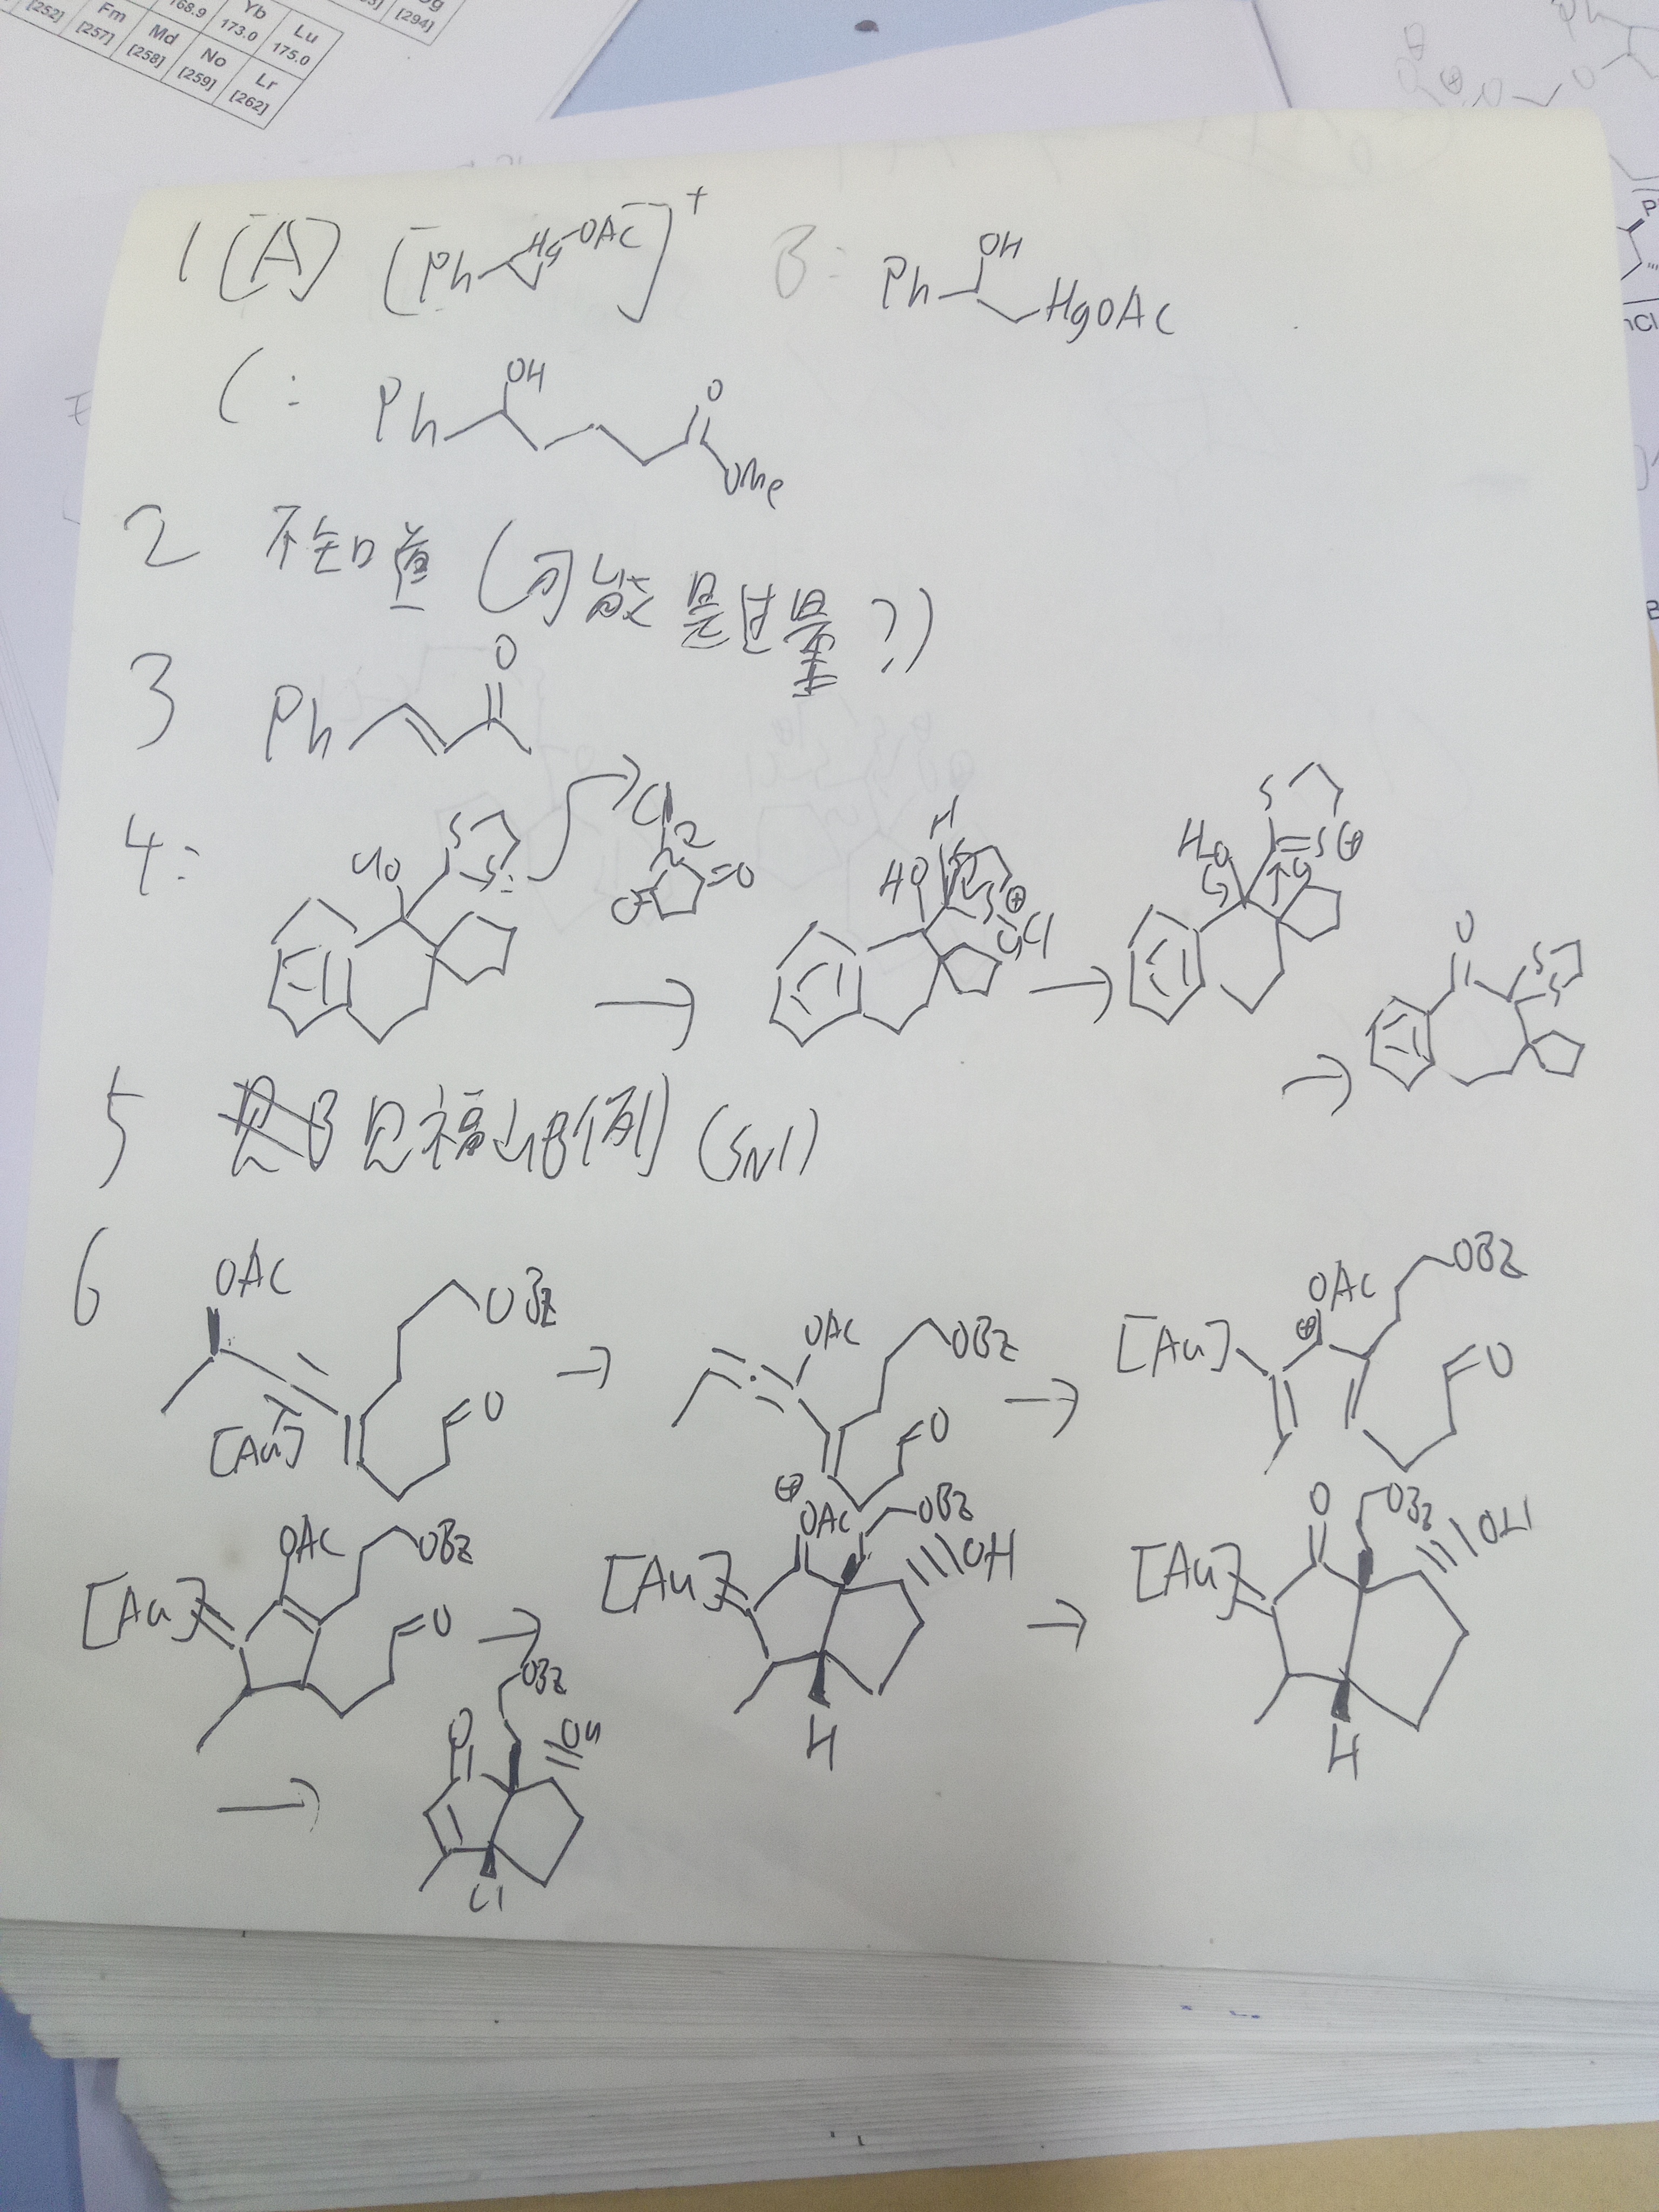 [252] Fm [257] 168.9 Md [258] Yb 173.0 No [259] Lu 175.0 Lr [262] [294]
1 [A] [Ph Hg OAc]+ B: Ph OH HgOAc
C: Ph OH O OMe
2 不知道 (可能是过量?)
3 Ph O
4: HO S S Cl N O O → HO H S S⊕ Cl → HO S S⊕ → O S S
5 见福山的例 (SN1)
6 OAc [Au] OBz O → OAc OBz O → [Au] ⊕ OAc OBz O
[Au] OAc OBz O → [Au] ⊕ OAc OBz OH H → [Au] O OBz OH H
→ O OBz OH H